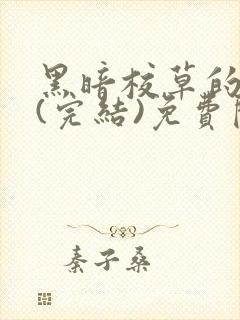 黑暗校草的
(完結)免費
秦子桑